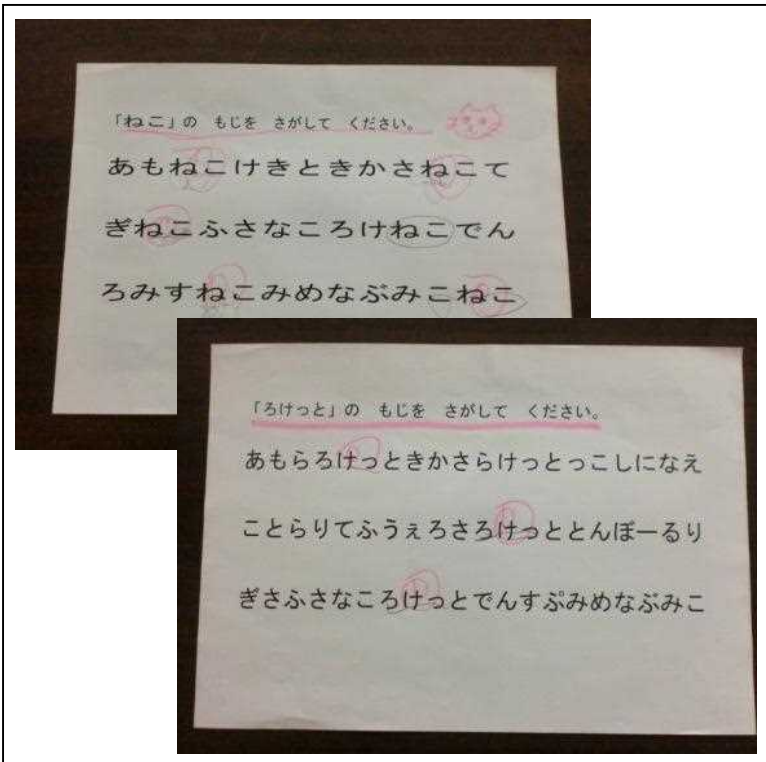 「ねこ」の もじを さがして ください。
あもねこけきときかさねこて
ぎねこふさなころけねこでん
ろみすねこみめなぶみこねこ
「ろけっと」の もじを さがして ください。
あもらろけっときかさらけっとっこしになえ
ことらりてふうぇろさろけっととんぼーるり
ぎさふさなころけっとでんすぷみめなぶみこ